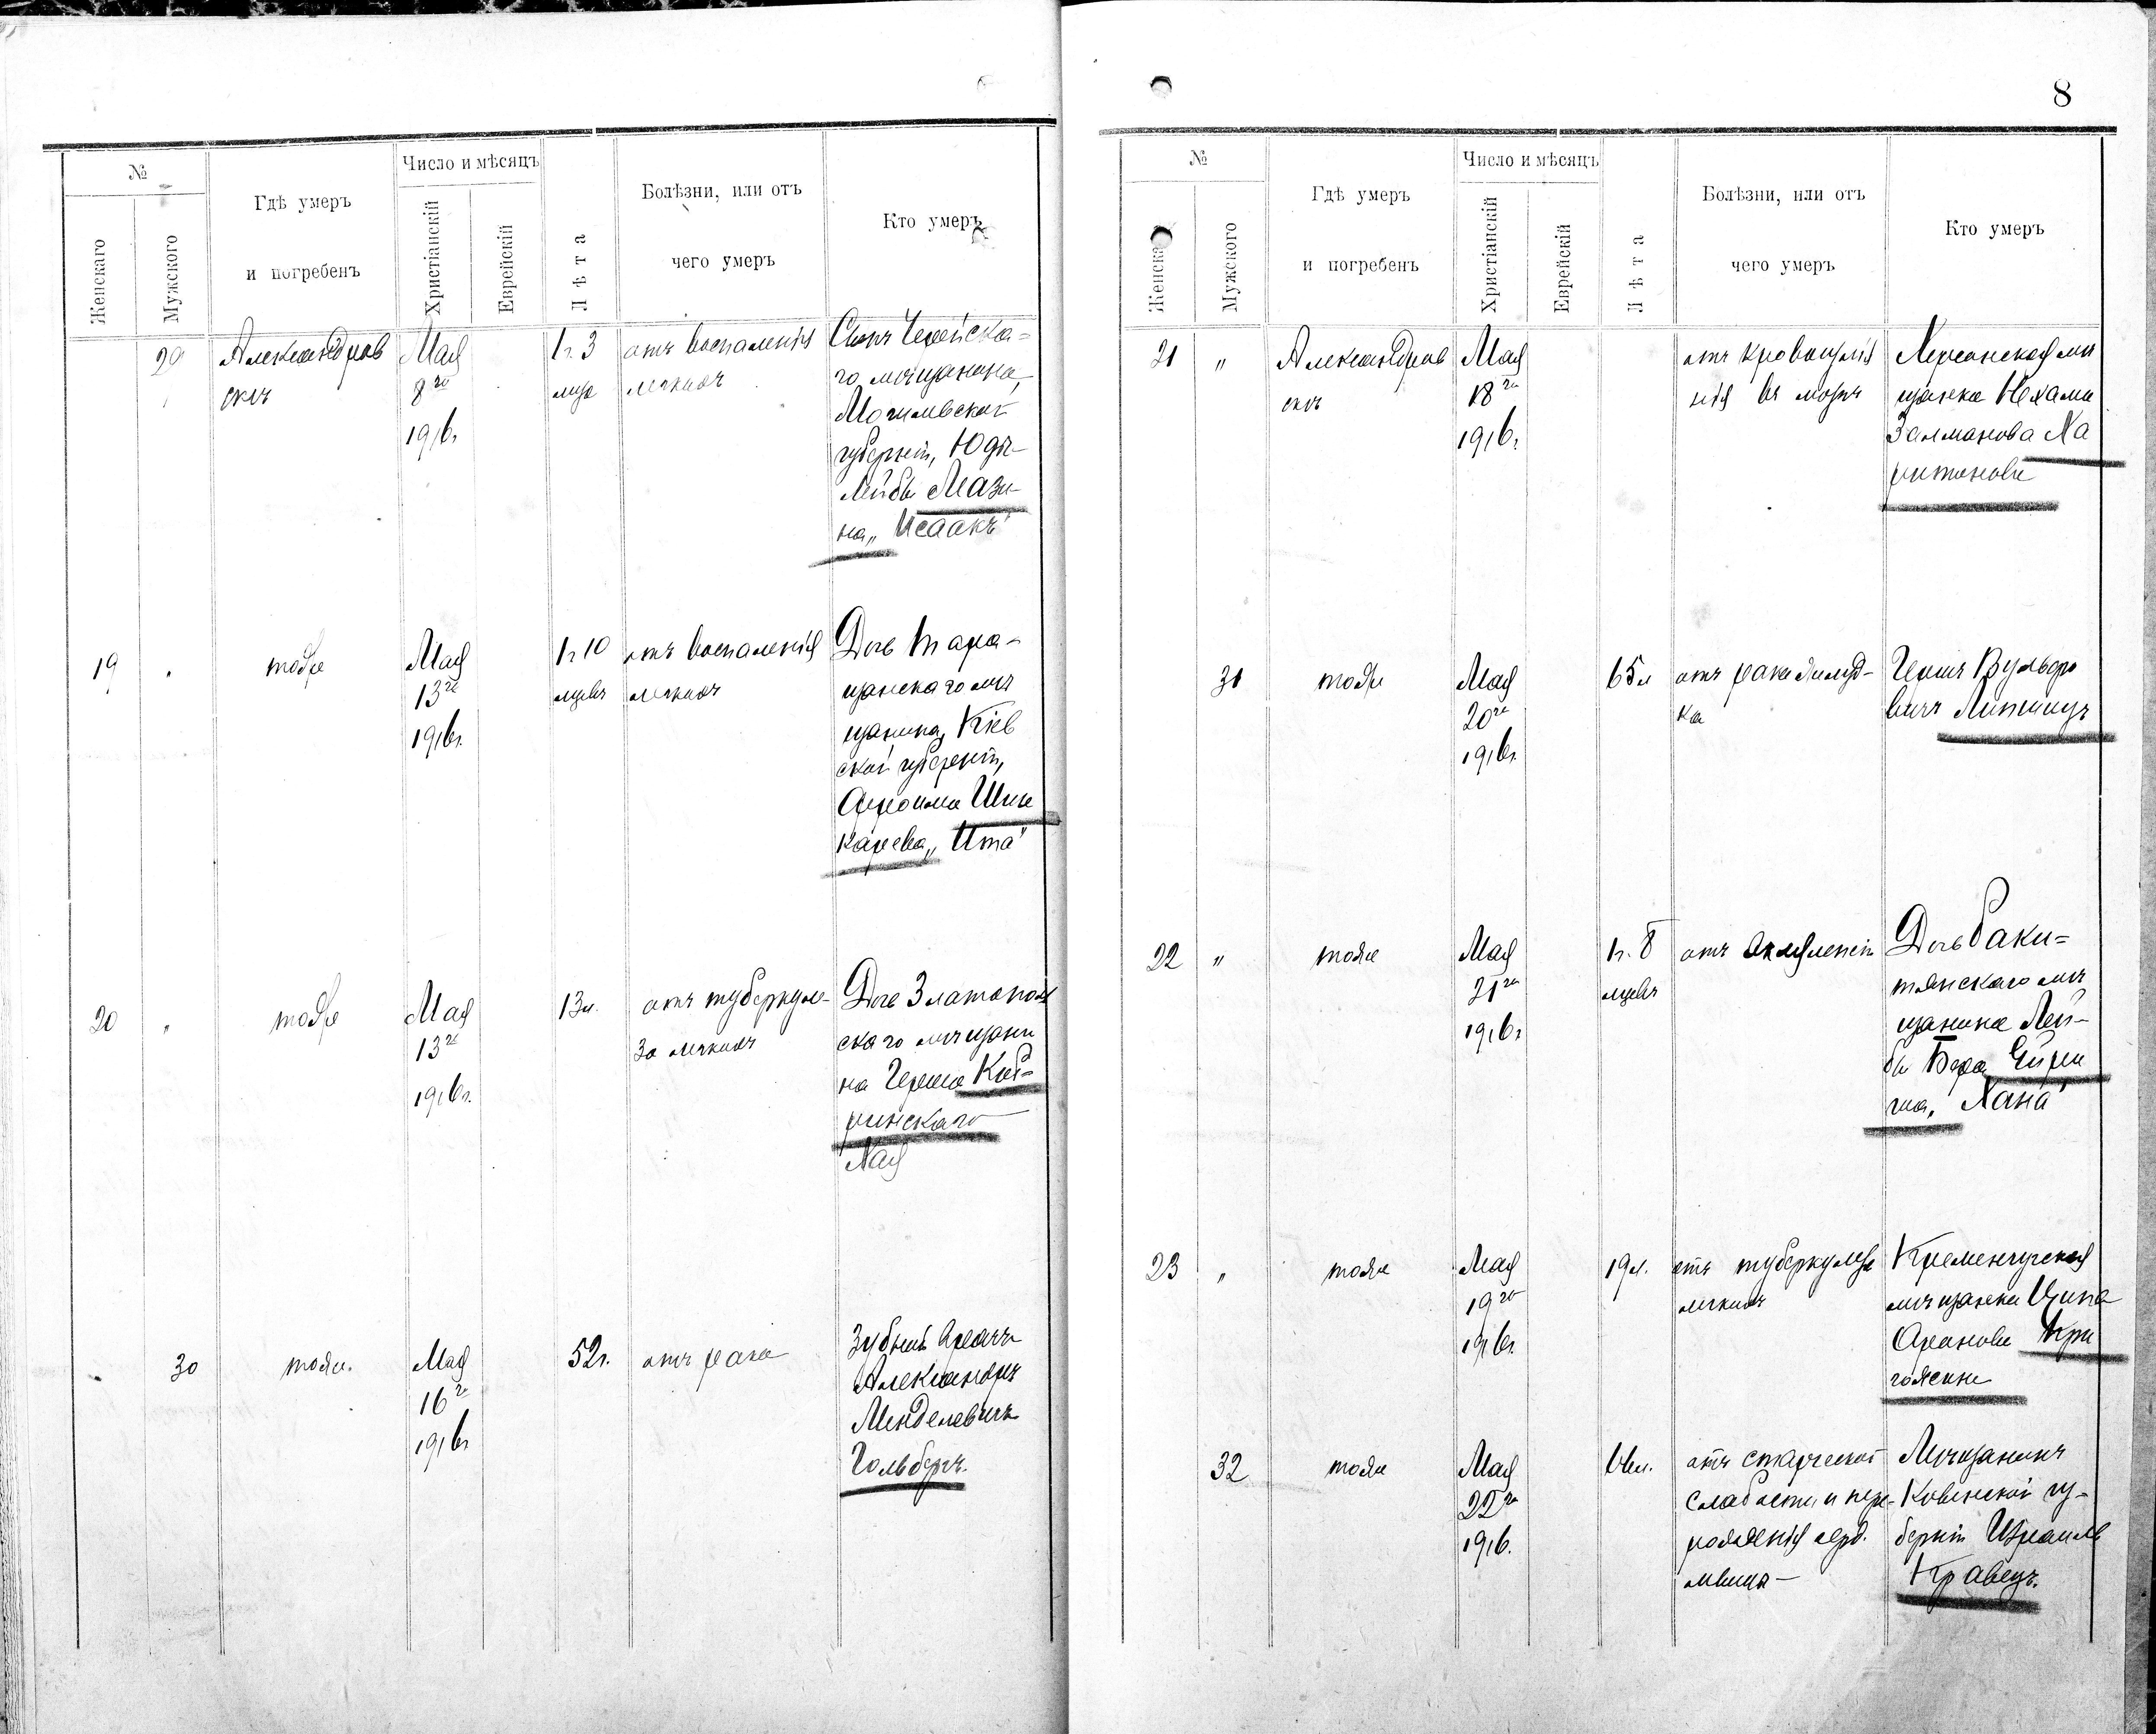 №
Женскаго
Мужского
Гдѣ умеръ
и погребенъ
Число и мѣсяцъ
Христіанскій
Еврейскій
Лѣта
Болѣзни, или отъ
чего умеръ
Кто умеръ
29
Александров
скъ
Мая
8го
1916г.
1г. 3
мца
отъ воспаленія
легкихъ
Сынъ Черейска=
го мѣщанина,
Могилевской
губерніи, Юды-
Лейбы Мази-
на „Исаакъ"
19
"
тоже
Мая
13го
1916г.
1г 10
мцевъ
отъ воспаленія
легкихъ
Дочь Тара-
щанскаго мѣ
щанина, Кіев
ской губерніи,
Афроима Шин
карева „Ита"
20
"
тоже
Мая
13го
1916г.
13л.
отъ туберкуле-
за легкихъ
Дочь Златополь
скаго мѣщани
на Герша
ринскаго
Хая
30
тоже.
Мая
16го
1916г
52г.
отъ рака
Зубной врачъ
Александръ
Менделевичъ
Гольбергъ.
8
№
Женска
Мужского
Гдѣ умеръ
и погребенъ
Число и мѣсяцъ
Христіанскій
Еврейскій
Лѣта
Болѣзни, или отъ
чего умеръ
Кто умеръ
21
"
Александров
скъ
Мая
18го
1916г.
отъ кровоизлія
нія въ мозгъ
Херсонская мѣ
щанка Нехама
Залманова Ха
ритонова
31
тоже
Мая
20го
1916г.
65л
отъ рака желуд-
ка
Гершъ Вульфо
вичъ Липшицъ
22
"
тоже
Мая
21го
1916г.
1г. 8
мцевъ
отъ
Дочь Раки=
тянскаго мѣ
щанина Лей-
бы Бера
„Хана"
23
"
тоже
Мая
19го
1916г.
19л.
отъ туберкулеза
легкихъ
Кременчугская
мѣщанка Ципа
Аронова Кри
32
тоже
Мая
22го
1916.
66л.
отъ старческой
слабости и пере-
рожденія серд.
мышцы-
Мѣщанинъ
Ковенской гу-
берніи Израиль
Кравецъ.